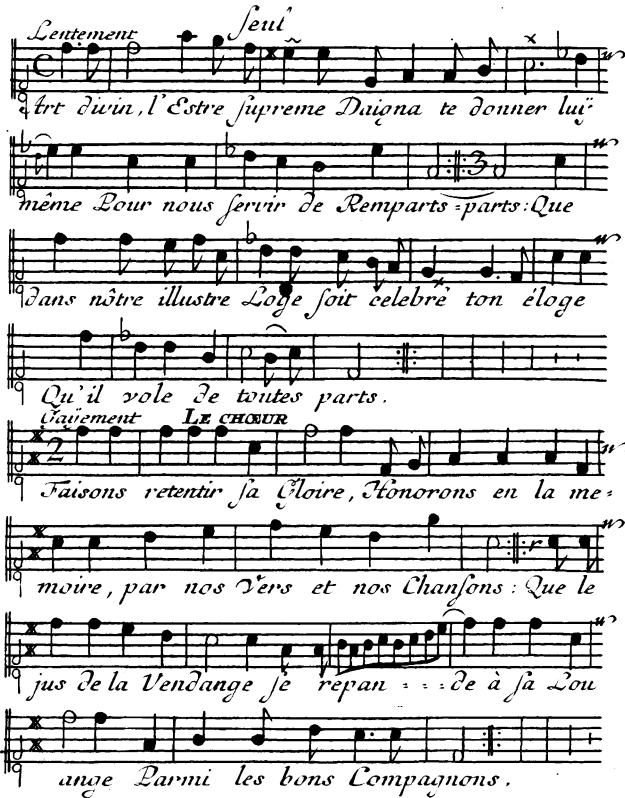 Lentement Seul
Art divin, l'Estre supreme Daigna te donner luÿ
même Pour nous servir de Remparts-parts: Que
dans nôtre illustre Loge soit celebré ton éloge
Qu'il vole de toutes parts.
Gaÿement LE CHŒUR
Faisons retentir sa Gloire, Honorons en la me-
moire, par nos Vers et nos Chansons: Que le
jus de la Vendange se repan---de à sa Lou
ange Parmi les bons Compagnons.